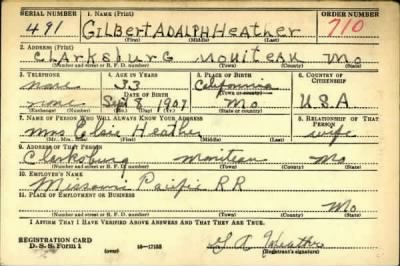 SERIAL NUMBER 1. NAME (Print) ORDER NUMBER
491 GILBERT ADALPH HEATHER 710
(First) (Middle) (Last)
2. ADDRESS (Print)
CLARKSBURG MONITEAU MO
(Number and street or R. F. D. number) (Town) (County) (State)
3. TELEPHONE 4. AGE IN YEARS 5. PLACE OF BIRTH 6. COUNTRY OF CITIZENSHIP
none 33 California
DATE OF BIRTH (Town or county)
none Sept 8 1907 Mo U.S.A
(Exchange) (Number) (Mo.) (Day) (Yr.) (State or country)
7. NAME OF PERSON WHO WILL ALWAYS KNOW YOUR ADDRESS 8. RELATIONSHIP OF THAT PERSON
Mrs Elsie Heather wife
(Mr., Mrs., Miss) (First) (Middle) (Last)
9. ADDRESS OF THAT PERSON
Clarksburg Moniteau Mo
(Number and street or R. F. D. number) (Town) (County) (State)
10. EMPLOYER'S NAME
Missouri Pacific RR
11. PLACE OF EMPLOYMENT OR BUSINESS
Mo.
(Number and street or R. F. D. number) (Town) (County) (State)
I AFFIRM THAT I HAVE VERIFIED ABOVE ANSWERS AND THAT THEY ARE TRUE.
REGISTRATION CARD
D. S. S. Form 1 (over) 16—17105 G A Heather